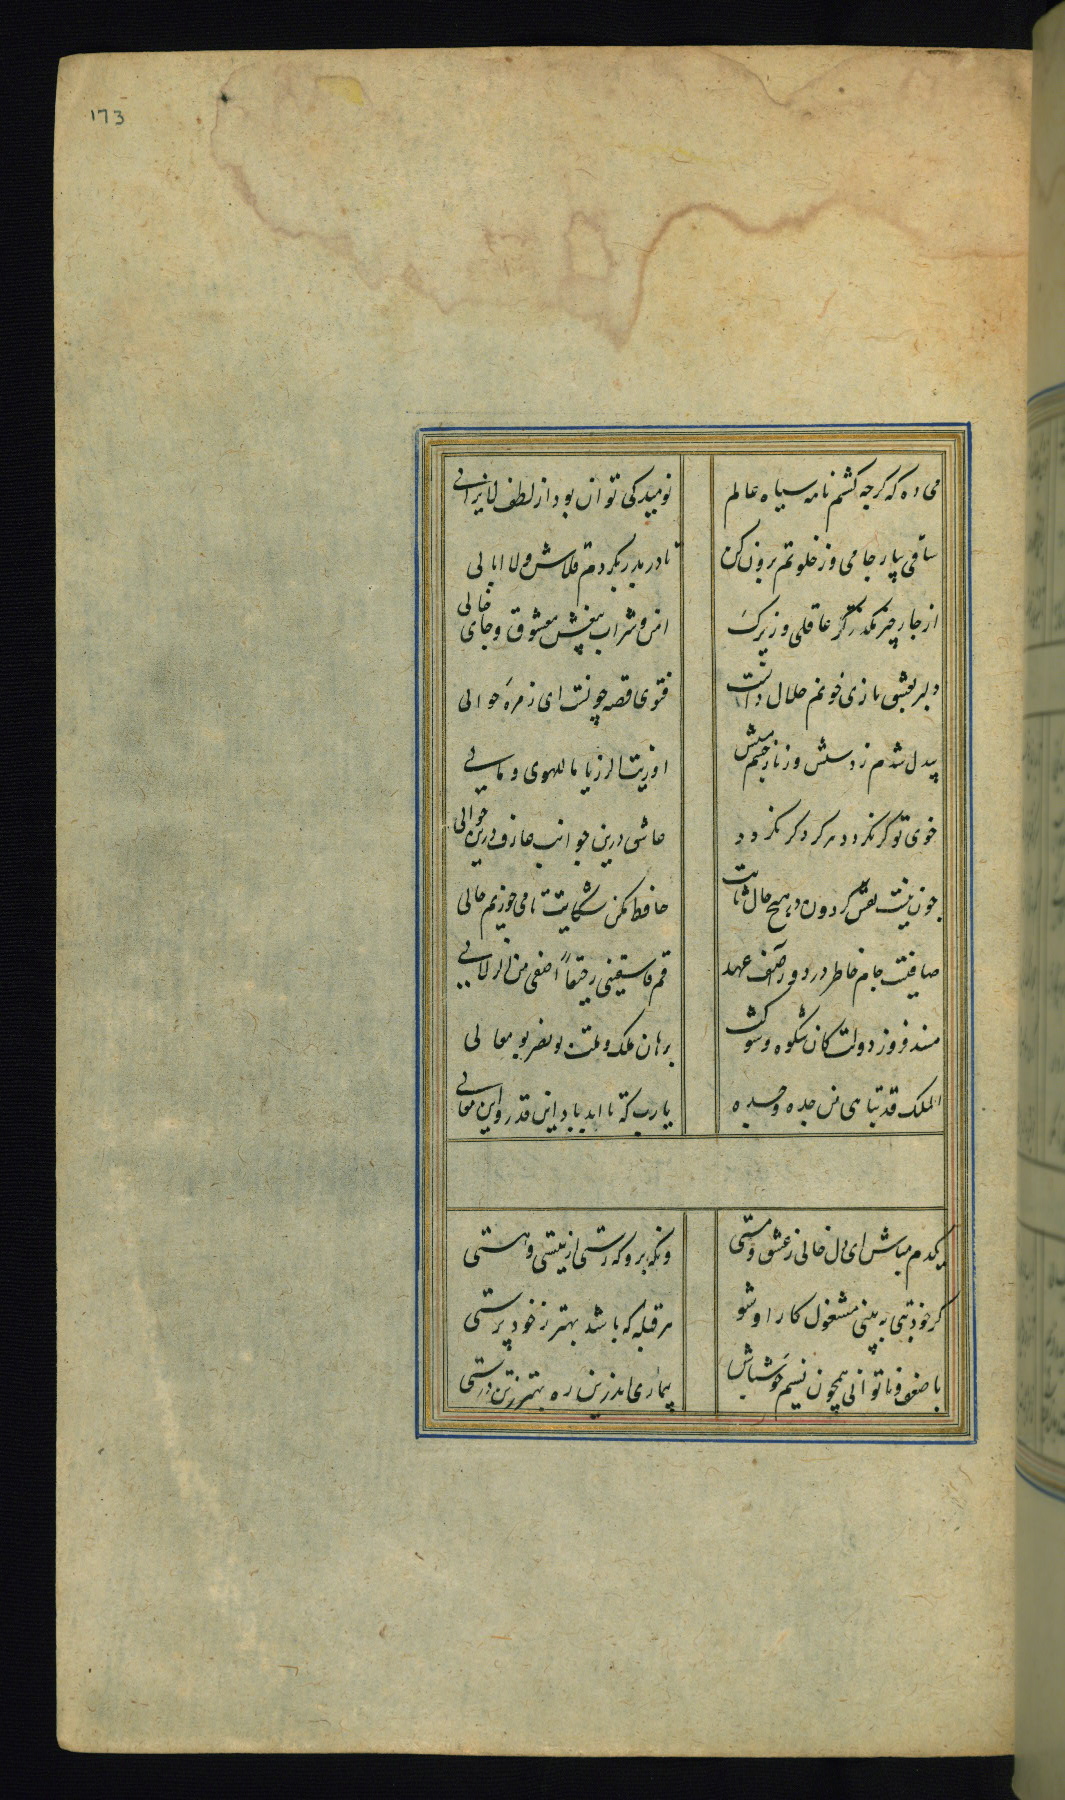 173
می ده که گرچه گشتم نامه سیاه عالم نومید کی توان بود از لطف لایزالی
ساقی بیار جامی وز خلوتم برون کن تا در بدر بگردم قلاش و لاابالی
از چار چیز مگذر گر عاقلی و زیرک امن و شراب بیغش معشوق و جای خالی
دلبر بعشق بازی خونم حلال دانست فتوی قصه چونست ای زمره حوالی
بیدل شدم ز دستش وز ناز چشم مستش اوذیت الرزایا ماللهوی و مالی
خوی تو گر نگردد هرگز دگر نگردد عاشق درین جوانب عارف درین حوالی
چون نیست نقش گردون در هیچ حال ثابت حافظ مکن شکایت تا می خوریم حالی
صافیست جام خاطر در دور آصف عهد قم فاسقنی رحیقا اصفی من الزلالی
مسند فروز دولت کان شکوه و شوکت برهان ملک و ملت بو نصر بو معالی
الملک قد تباهی من جده و جده یا رب که تا ابد باد این قدر و این معالی
یکدم مباش ای دل خالی ز عشق و مستی وانگه برو که رستی از نیستی و هستی
گر خود بتی ببینی مشغول کار او شو هر قبله که باشد بهتر ز خود پرستی
با ضعف و ناتوانی همچون نسیم خوش باش بیماری اندرین ره بهتر ز تن درستی